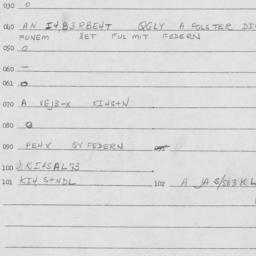 030 0
040 AN I4,B3RBEHT QGLY A POLSTER DI
FUNEM BET FUL MIT FEDERN
050 0
060 —
061 0
070 A YEJ3-X KI4S+N
080 0
090 PEHX QY FEDERN 095
100 KI4SAL73
101 KI4 S+NDL 102 A JA